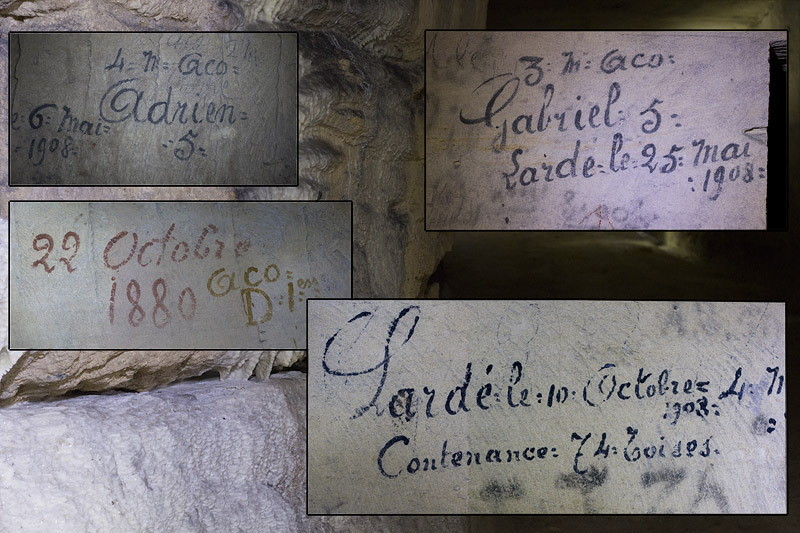 4= M= Aco=
Adrien=
e 6= Mai=
1908=
=5=
3= M= Aco=
Gabriel= 5=
Lardé=le=25= Mai
=1908=
22 Octobre
1880
Aco=
D=1=er
Lardé=le=10= Octobre= 4= M
1908=
Contenance= 74=Toises.